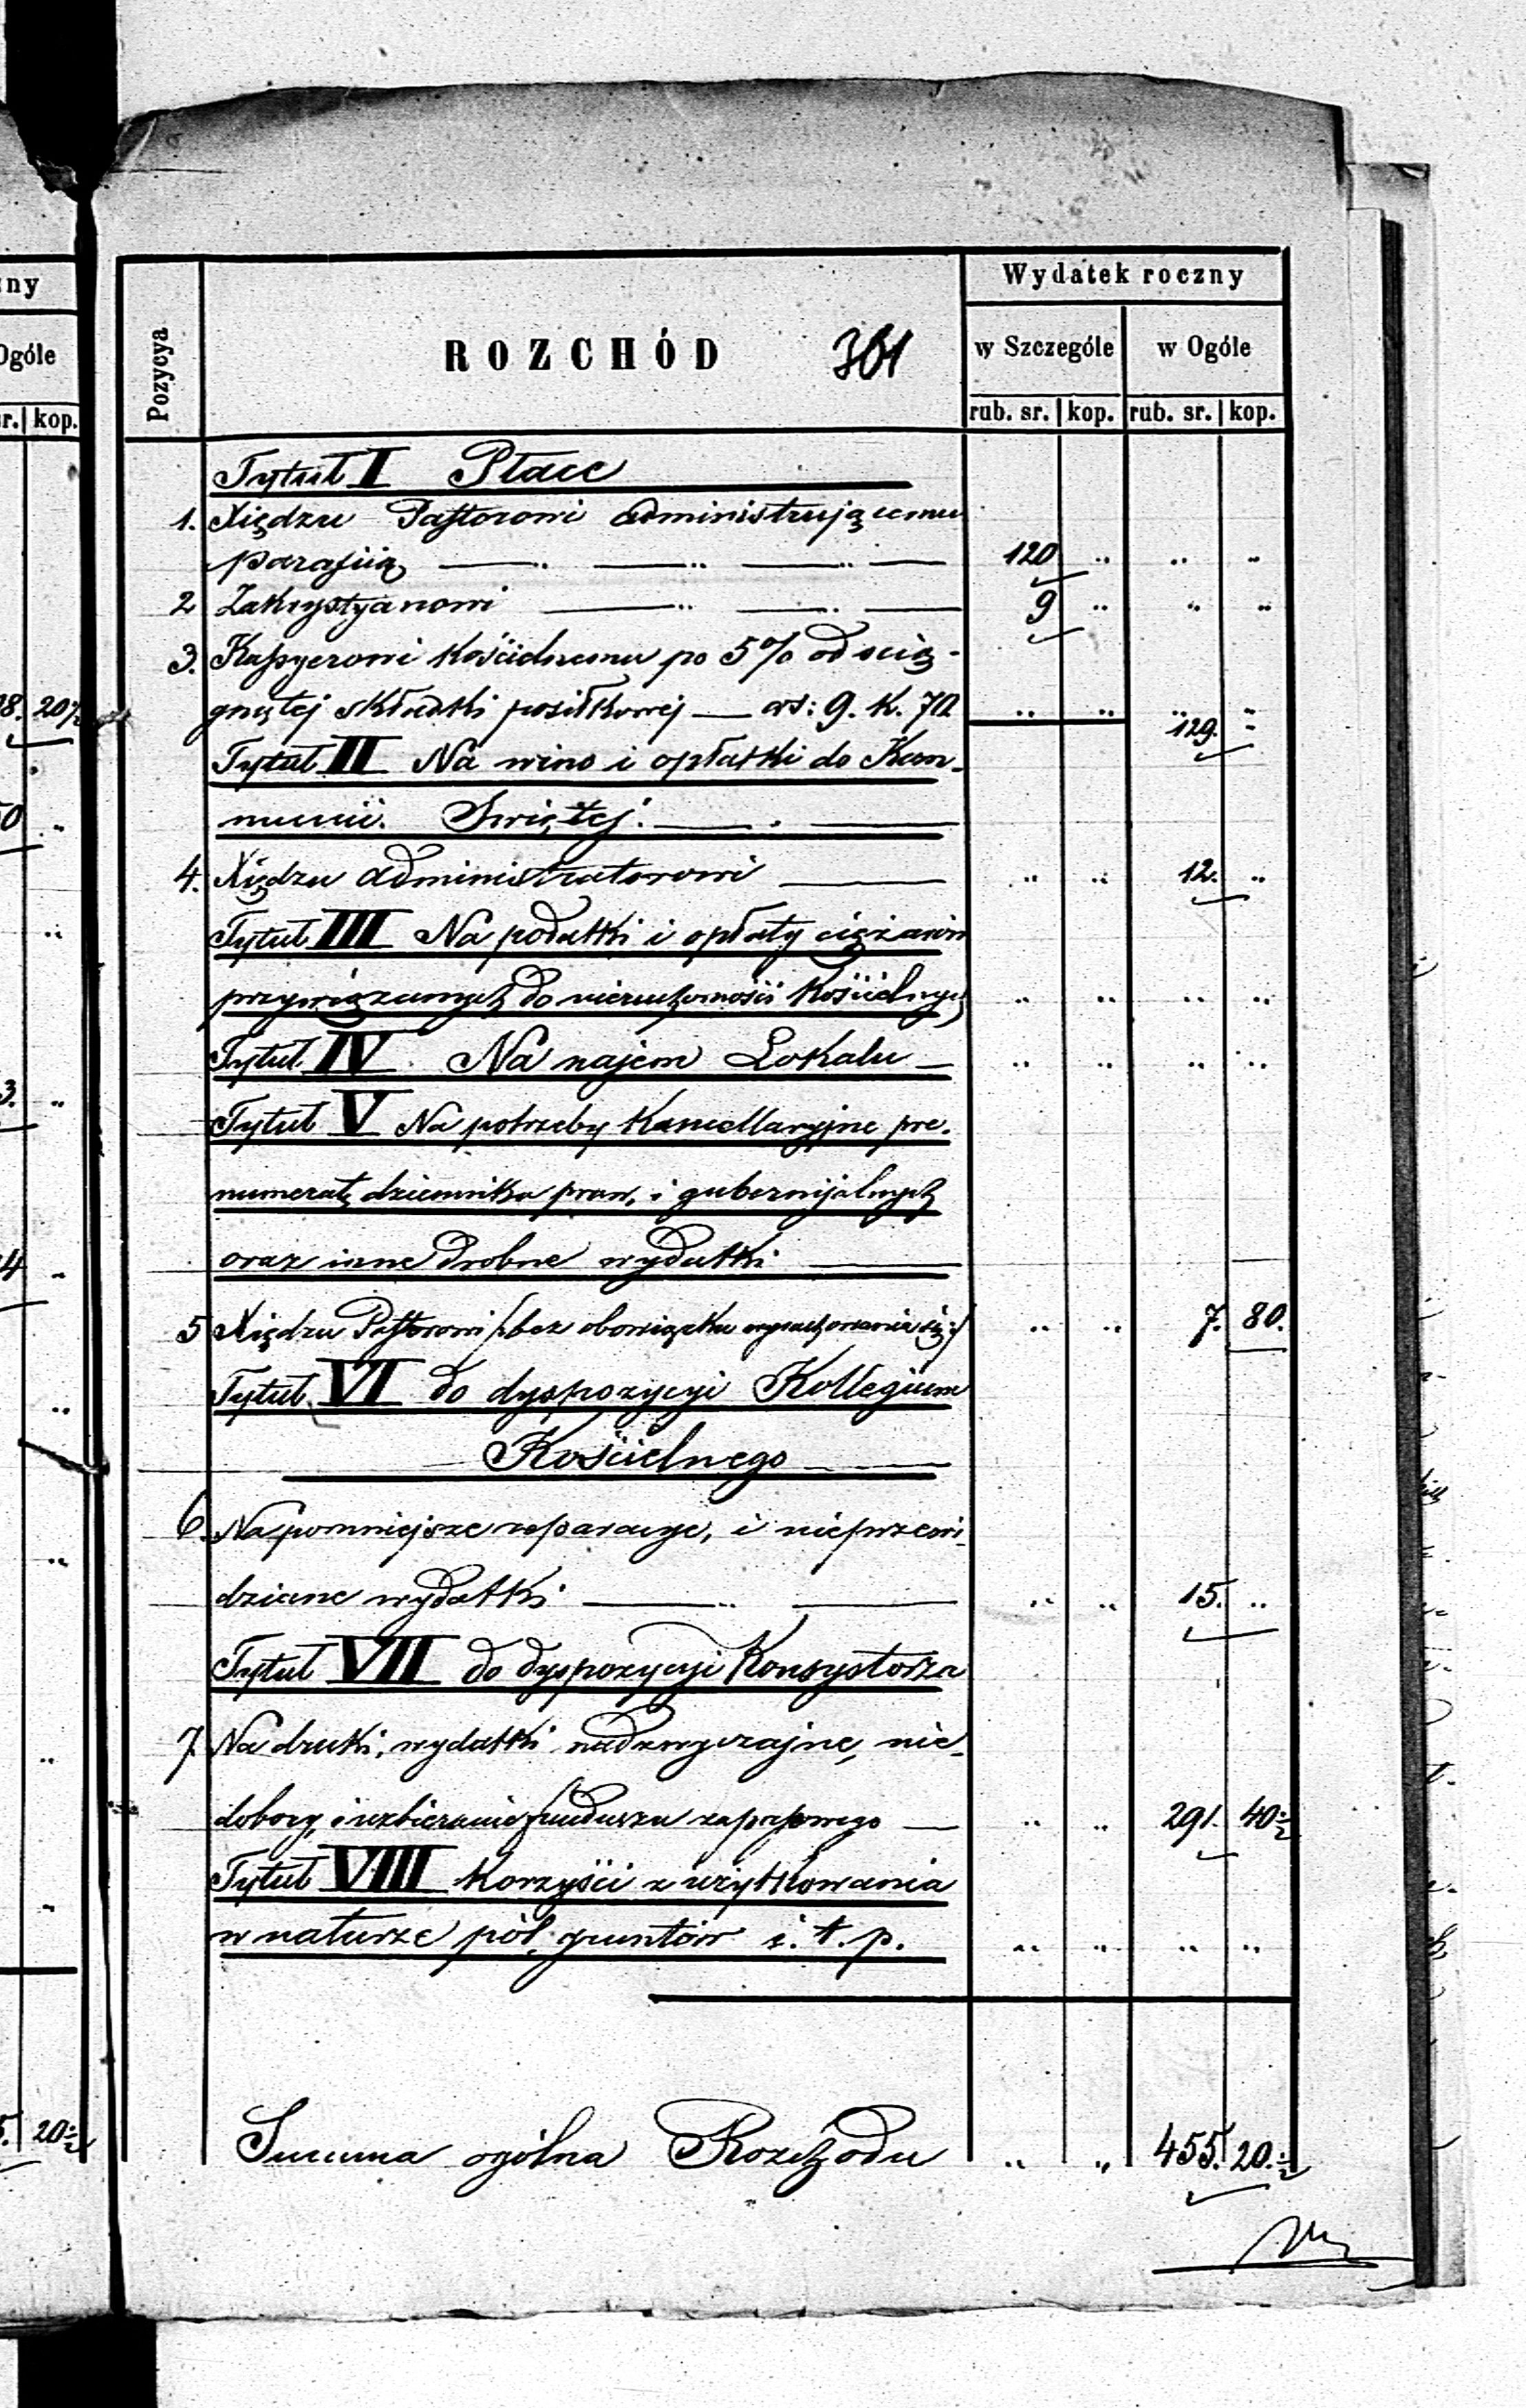 zny
Ogóle
sr. kop.
8. 20½
20½
Pozycya
ROZCHÓD 301
Wydatek roczny
w Szczególe w Ogóle
rub. sr. kop. rub. sr. kop.
Tytuł I Płace
1. Xiędzu Pastorowi administrującemu
parafiią — " — " — " — 120 " " "
2 Zakrystyanowi — " — " — 9 " " "
3. Kassyerowi Kościelnemu po 5% od ścią-
gniętej składki posiłkowej — rs: 9. k. 70 " " " "
129. "
Tytuł II Na wino i opłatki do Kom-
munii Swiętej. — " —
4. Xiędzu administratorowi — " " 12. "
Tytuł III Na podatki i opłaty ciężarów
przywiązanych do nieruchomości Kościelnych " " " "
Tytuł IV. Na najem Lokalu — " " " "
Tytuł V Na potrzeby Kancellaryjne pre-
numeratę dziennika praw, i gubernijalnych
oraz inne drobne wydatki —
5 Xiędzu Pastorowi /:bez obowiązku wyrachowania się:/ " " 7. 80.
Tytuł VI do dyspozycyi Kollegium
Kościelnego —
6. Na pomniejsze reparacye, i nieprzewi-
dziane wydatki — " — " " 15. "
Tytuł VII do dyspozycyi Konsystorza
7. Na druki, wydatki nadzwyczajne, nie-
dobory, i uzbieranie funduszu zapasowego — " " 291. 40½
Tytuł VIII Korzyści z użytkowania
w naturze pól, gruntów i. t. p. " " " "
Summa ogólna Rozchodu " " 455. 20.½